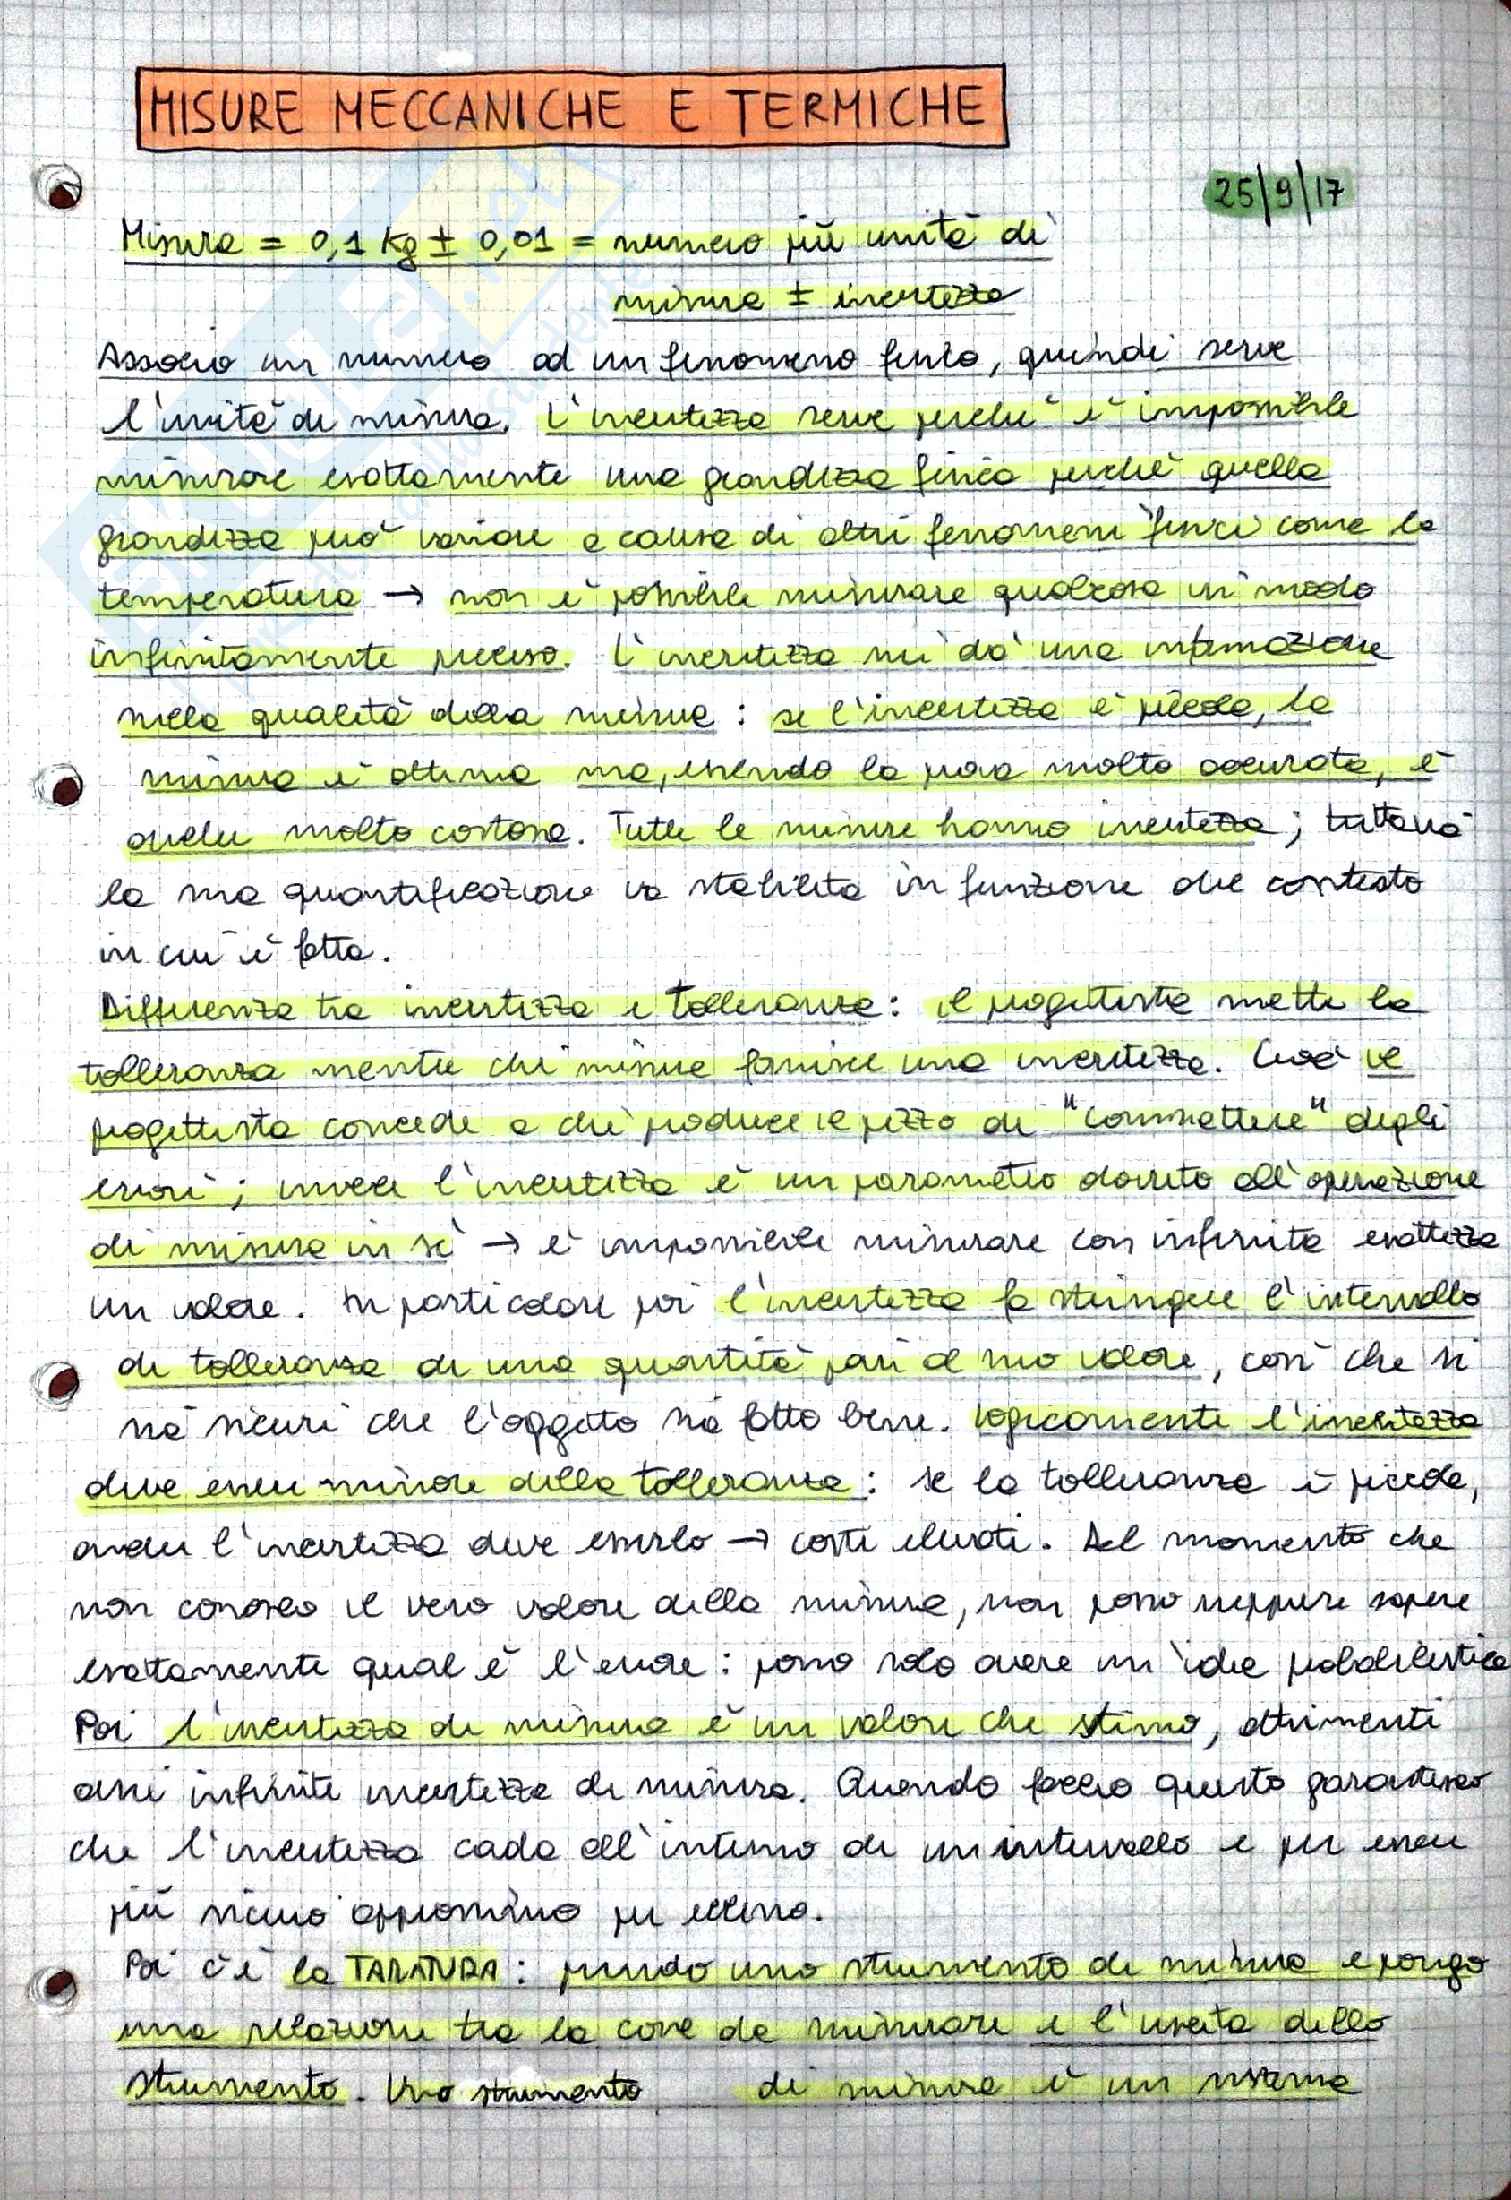 MISURE MECCANICHE E TERMICHE
25/9/17
Misura = 0,1 kg ± 0,01 = numero più unità di
misura ± incertezza
Associo un numero ad un fenomeno fisico, quindi serve
l'unità di misura. L'incertezza serve perché è impossibile
misurare esattamente una grandezza fisica perché quella
grandezza può variare a causa di altri fenomeni fisici come la
temperatura → non è possibile misurare qualcosa in modo
infinitamente preciso. L'incertezza mi dà una informazione
sulla qualità della misura : se l'incertezza è piccola, la
misura è ottima ma, essendo la prova molto accurata, è
anche molto costosa. Tutte le misure hanno incertezza ; tuttavia
la sua quantificazione va stabilita in funzione del contesto
in cui è fatta.
Differenza tra incertezza e tolleranza : il progettista mette la
tolleranza mentre chi misura fornisce una incertezza. Cioè il
progettista concede a chi produce il pezzo di "commettere" degli
errori ; invece l'incertezza è un parametro dovuto all'operazione
di misura in sé → è impossibile misurare con infinita esattezza
un valore. In particolare poi l'incertezza fa stringere l'intervallo
di tolleranza di una quantità pari al suo valore, così che si
sia sicuri che l'oggetto sia fatto bene. Logicamente l'incertezza
deve essere minore della tolleranza : se la tolleranza è piccola,
anche l'incertezza deve esserlo → costi elevati. Dal momento che
non conosco il vero valore della misura, non posso neppure sapere
esattamente qual è l'errore : posso solo avere un'idea probabilistica
Poi l'incertezza di misura è un valore che stimo, altrimenti
avrei infinite incertezze di misura. Quando faccio questo garantisco
che l'incertezza cada all'interno di un intervallo e per essere
più sicuro approssimo per eccesso.
Poi c'è la TARATURA : prendo uno strumento di misura e pongo
una relazione tra la cosa da misurare e l'uscita dello
strumento. Uno strumento di misura è un sistema